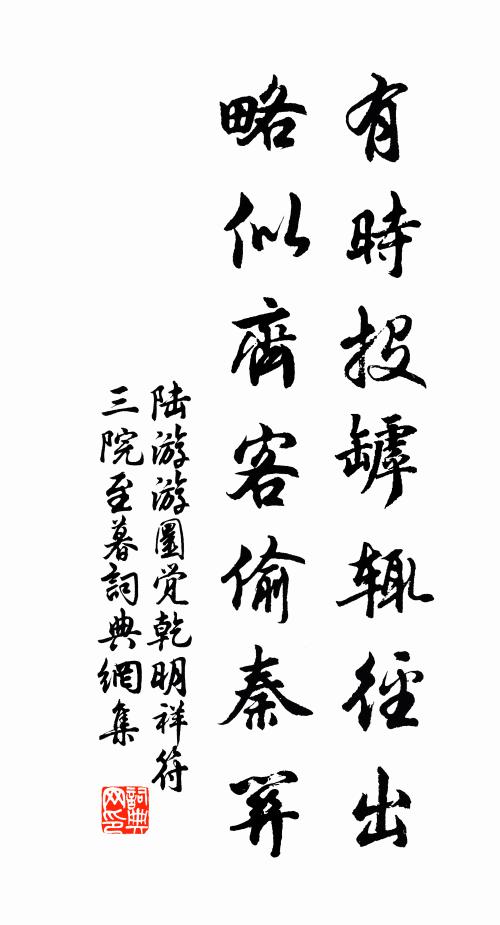 有時投罅輒徑出
略似齊客偷秦關
陆游游圜觉乾明祥符
三院至暮詞典網集
詞典網印